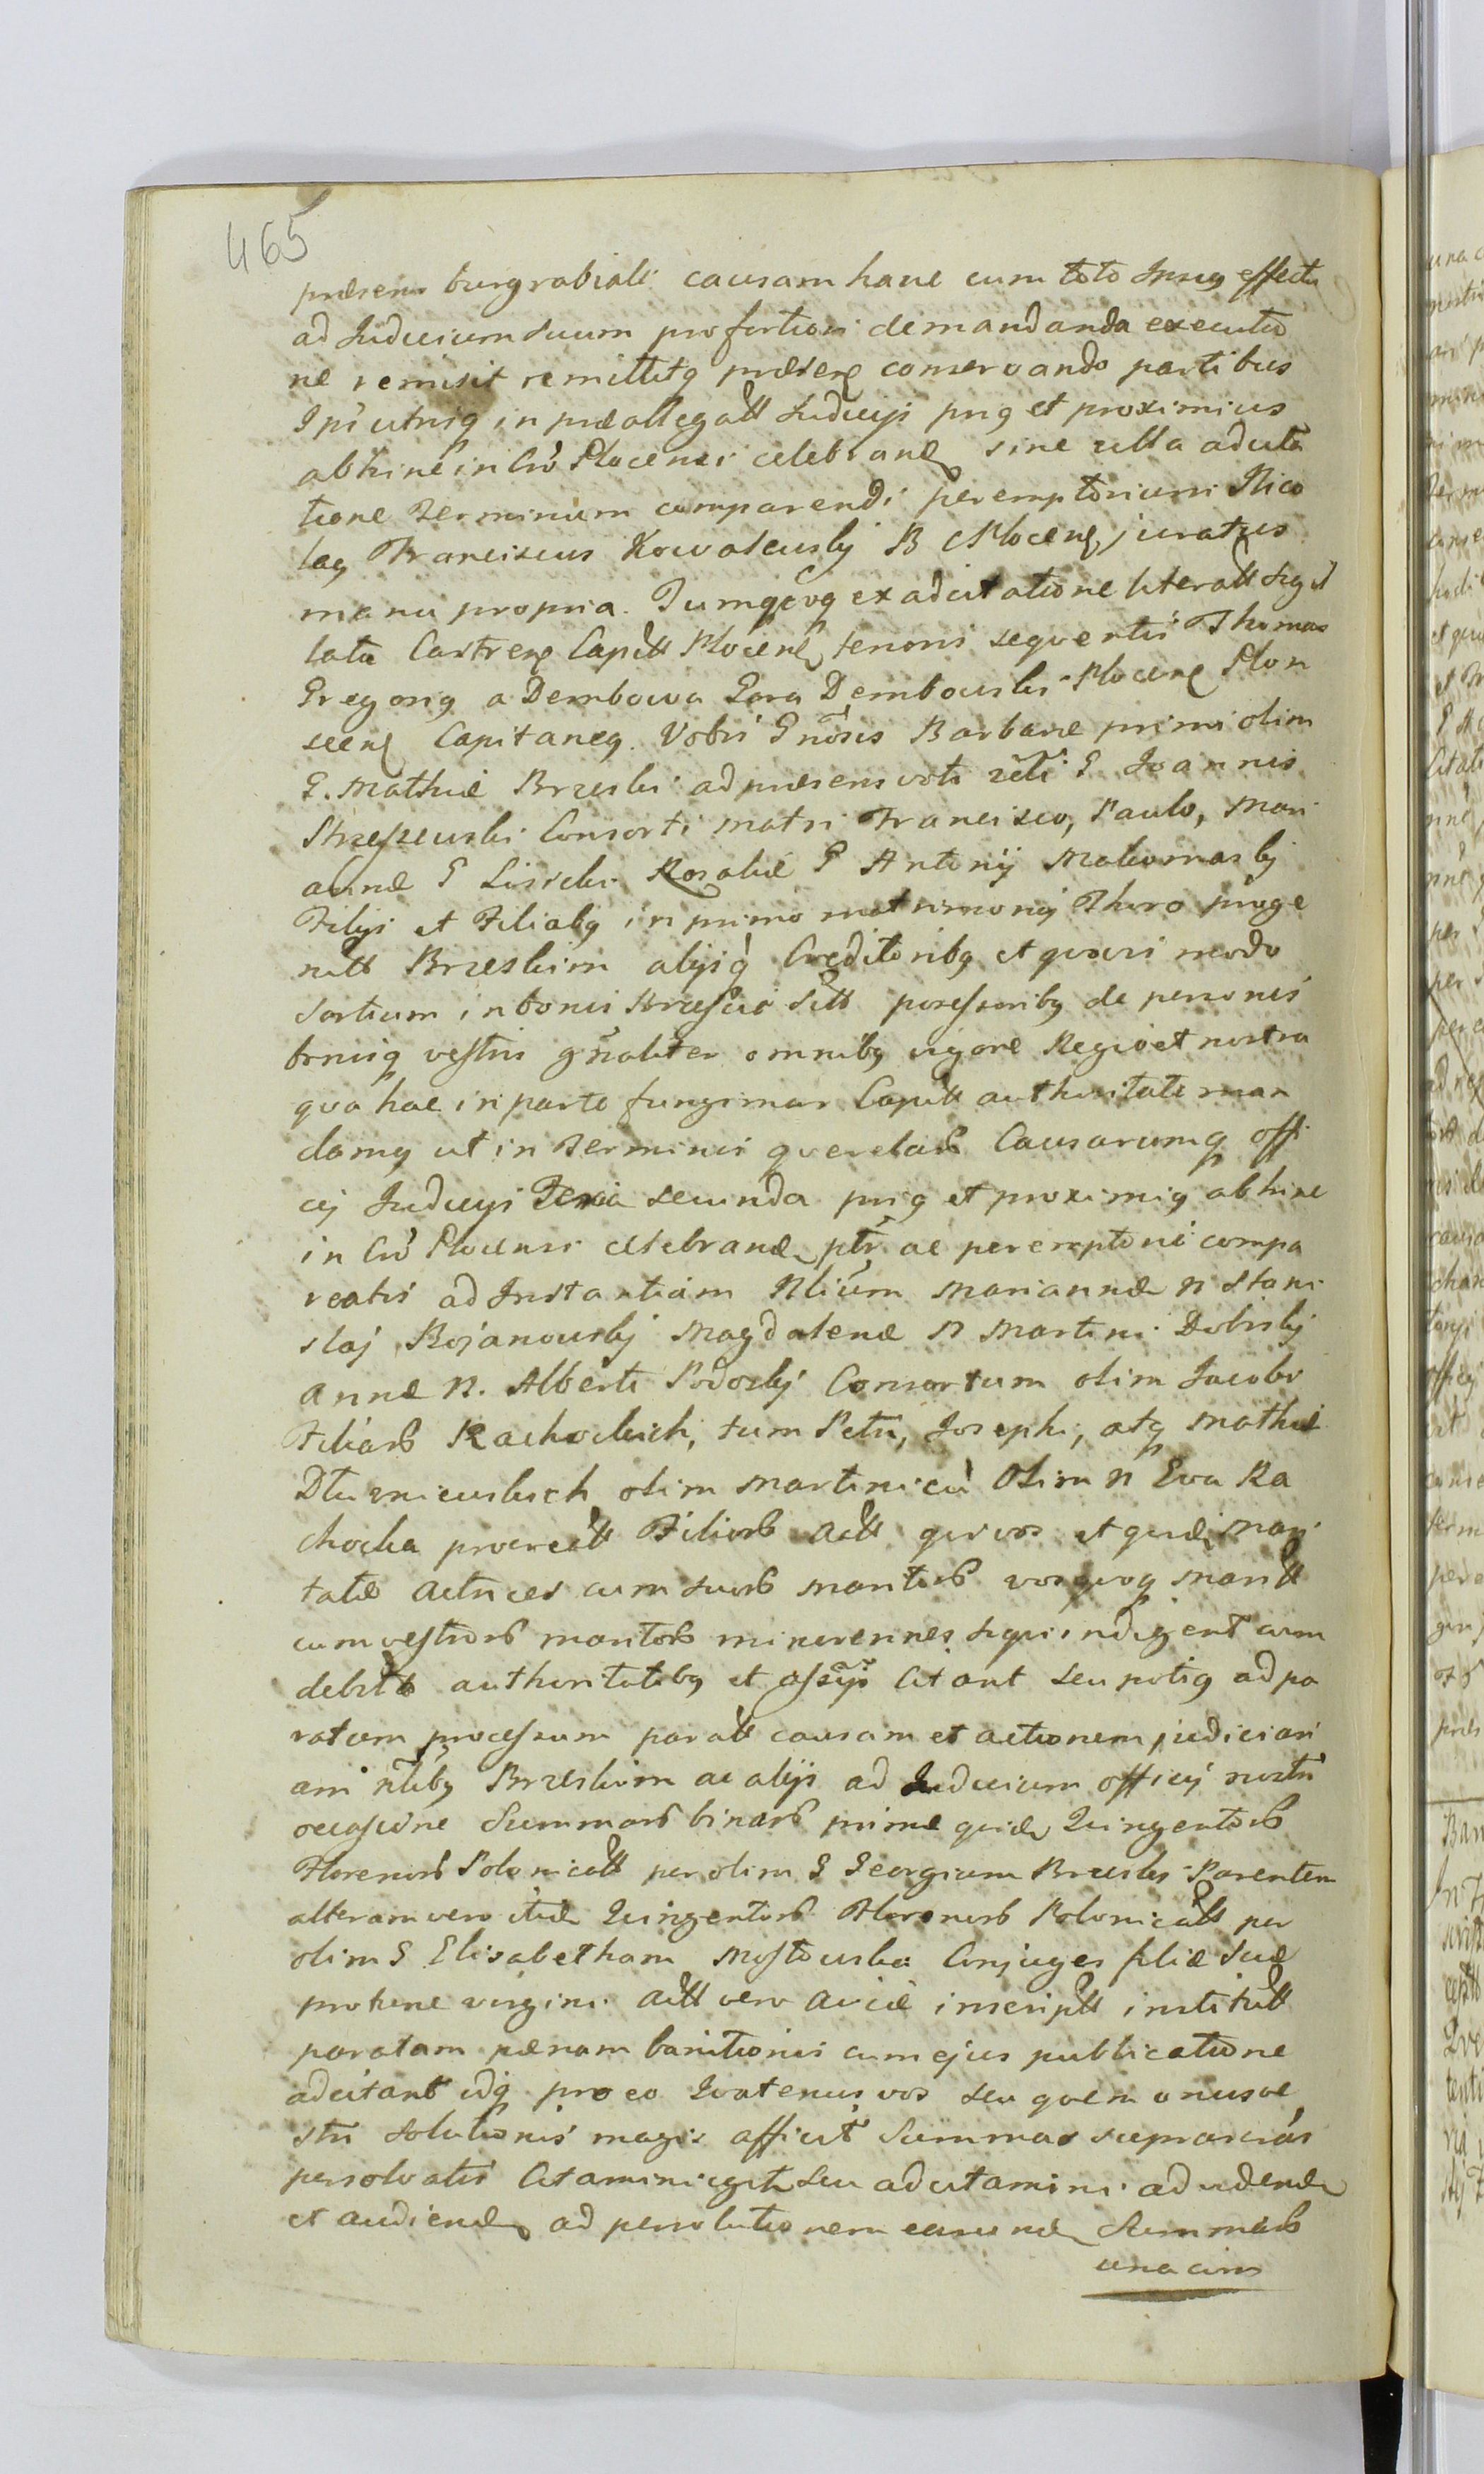 465
præsens burgrabiale causam hanc cum toto Ipsius effectu
ad Judicium suum pro fortiori demandanda executio
ne remisit remittitq præsenς conservando partibus
Ipī utriq in præallegatt Judicijs prīg et proximius
abhinc in Cῶ Plocensi celebranς sine ulla adcita
tione Terminum comparendi peremptorium Nico
laς Franciscus Kowalewskj B Plocenς juratus
manu propria. Tumqvoq ex adcitatione literatt Sigil
lata Castrenς Capitt Plocenς tenoris sequentis Thomas
Gregoriς a Dembowa Gora Dembowski Plocenς Plon
scenς Capitaneς. Vobis Gnōsis Barbaræ primi olim
G. Mathiæ Brzeski ad præsens voti ultī G. Joannis
Strzeszewski Consorti matri Francisco, Paulo, Mari
annæ G Lisicki Rosaliæ G Antonij Makomaskj
Filijs et Filiabς in primo matrimonij Thoro proge
nitt Brzeskim alijsq Creditoribς et qvovis modo
Sortium in bonis Strzeszewo Sitt possessoribς de personis
bonisq vestris gn̄aliter omnibς vigore Regio et nostra
qva hac in parte fungimur Capitt authoritate man
damς ut in Terminis qverelarb Causarumq offi
cij Judicijs Feria secunda prīg et proximiς abhinc
in Cῶ Plocensi celebranς ptr̄ ac peremptorie compa
reatis ad Instantiam Nlium Mariannæ N Stani
slai Bojanowskj Magdalenæ N Martini Dobrskj
Annæ N. Alberti Podoskj Consortum olim Jacobi
Filiarb Rachockich, tum Petri, Josephi, atq Mathiæ
Dłuzniewskich olim Martini cū Olim N Eva Ra
chocka procreatt Filiorb Actt qvi vos et qvidē Mari
tatæ Actrices cum suorb maritorb vos qvoq Maritt
cum vestrorb maritorb minorennes siqvi indigent cum
debitt authoritatibς et assijs Citant seu potiς ad pa
ratum processum paratt causam et actionem judiciari
am nltibς Brzeskim ac alijs ad Judicium officij nostri
occasione Summarb binarb primæ qvidē Qvingentorb
Florenorb Polonicatt per olim G Georgium Brzeski Parentem
alteram vero itidē Qvingentorb Florenorb Polonicatt per
olim G Elisabetham Mostowska Conjuges filiæ suæ
pro tunc virgini Actt vero Aviæ inscriptt institutt
paratam pænam banitionis cum ejus publicatione
adcitant idq pro eo Qvatenus vos seu qvem onus ve
stri Solutionis magis afficit Summas supraserias
persolvatis Citamini igitr seu adcitamini ad videnς
et audienς ad persolutionem earundē Summarb
una cum